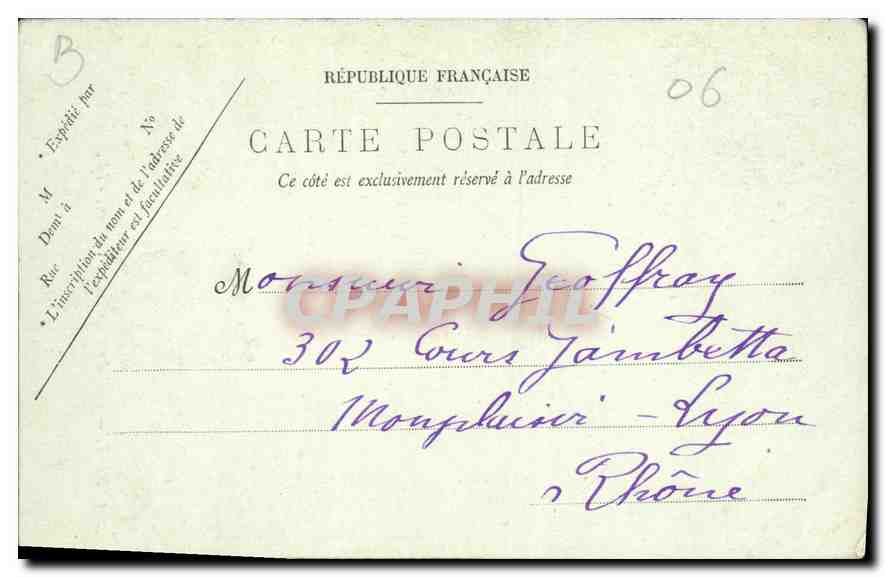 B
06
RÉPUBLIQUE FRANÇAISE
CARTE POSTALE
Ce côté est exclusivement réservé à l'adresse
* Expédié par
M
Demt à
Rue No
* L'inscription du nom et de l'adresse de
l'expéditeur est facultative
Monsieur Geoffray
CPAPHIL
302 Cours Gambetta
Monplaisir - Lyon
Rhône